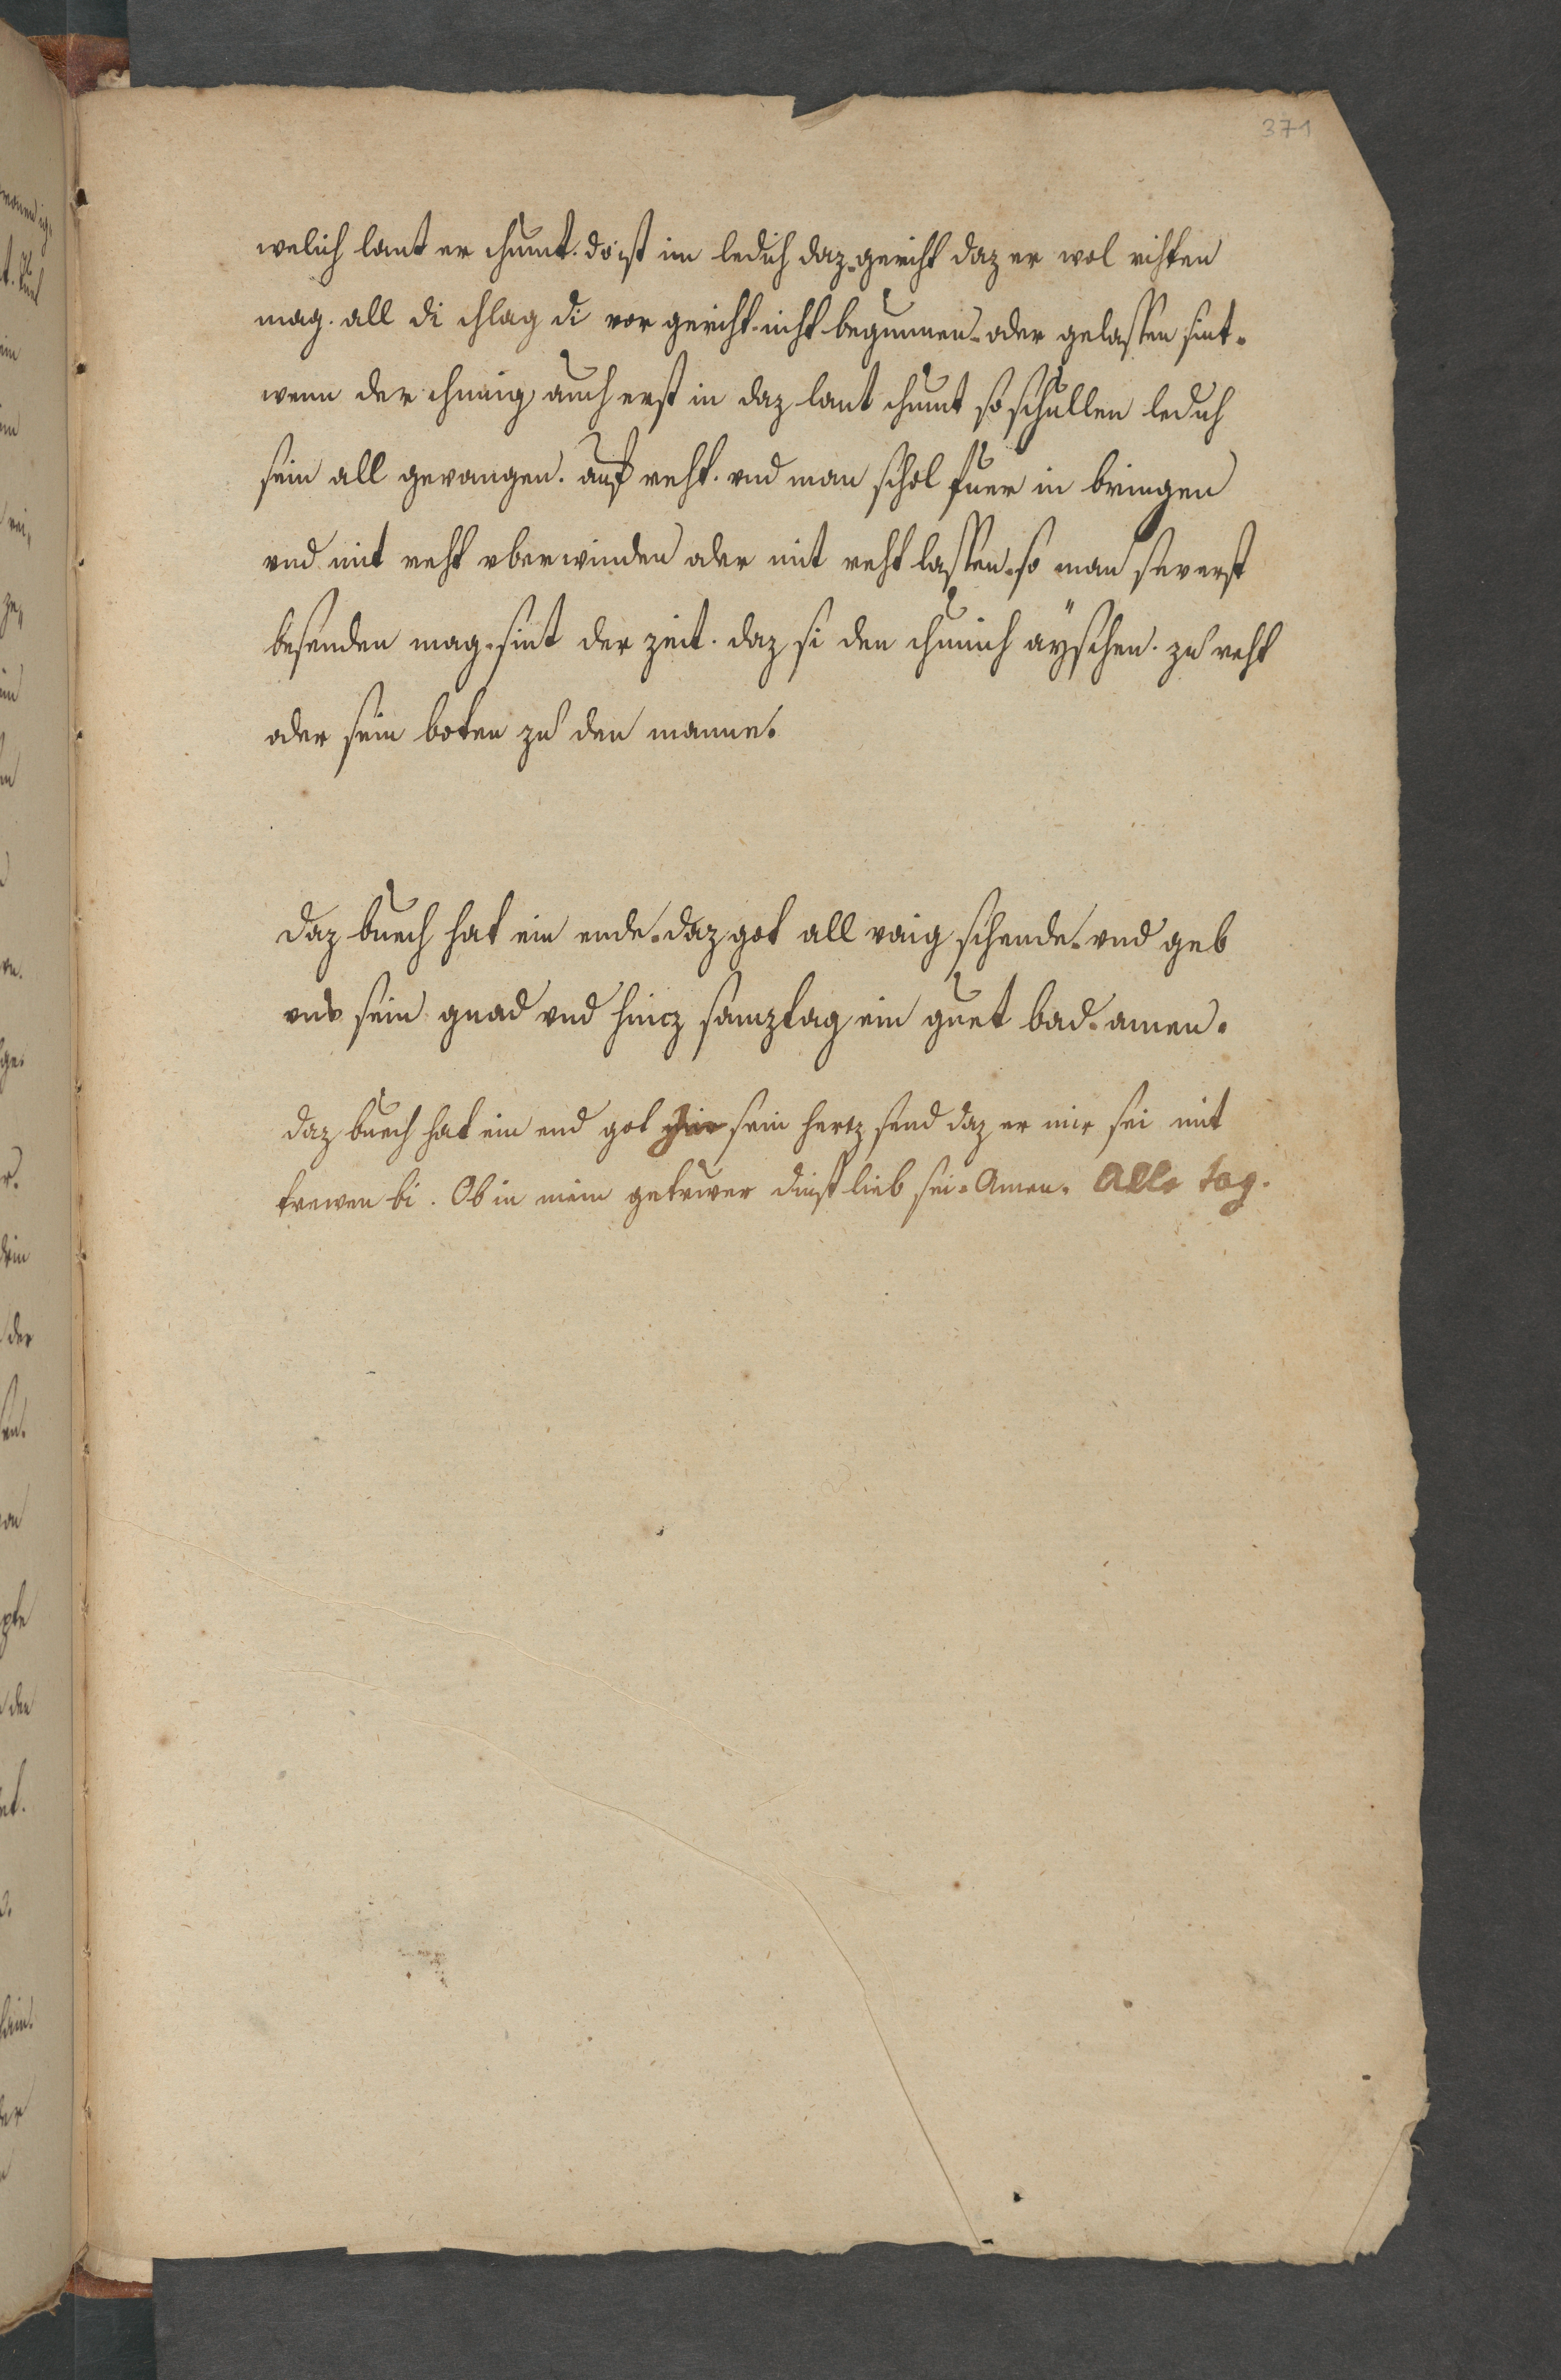 371
welich lant er chumt. do ist im ledich daz gericht daz er wol rihten
mag. all di chlag di vor gericht niht begunnen. oder gelassen sint.
wenn der chunig auch erst in daz lant chumt so schullen ledich
sein all gevangen. auf reht. vnd man schol fuer in bringen
vnd mit reht vberwinden oder mit reht lassen. so man si erst
besenden mag. sint der zeit. daz si den chunich aÿschen. zu reht
oder sein boten zu den manne.
daz buech hat ein ende. daz got all vaig schende. vnd geb
vns sein gnad vnd hincz samztag ein guet bad. amen.
daz buech hat ein end got sein hertz send daz er mir sei mit
trewen bi. Ob in mein getrwer dinst lieb sei. Amen. Alle tag.